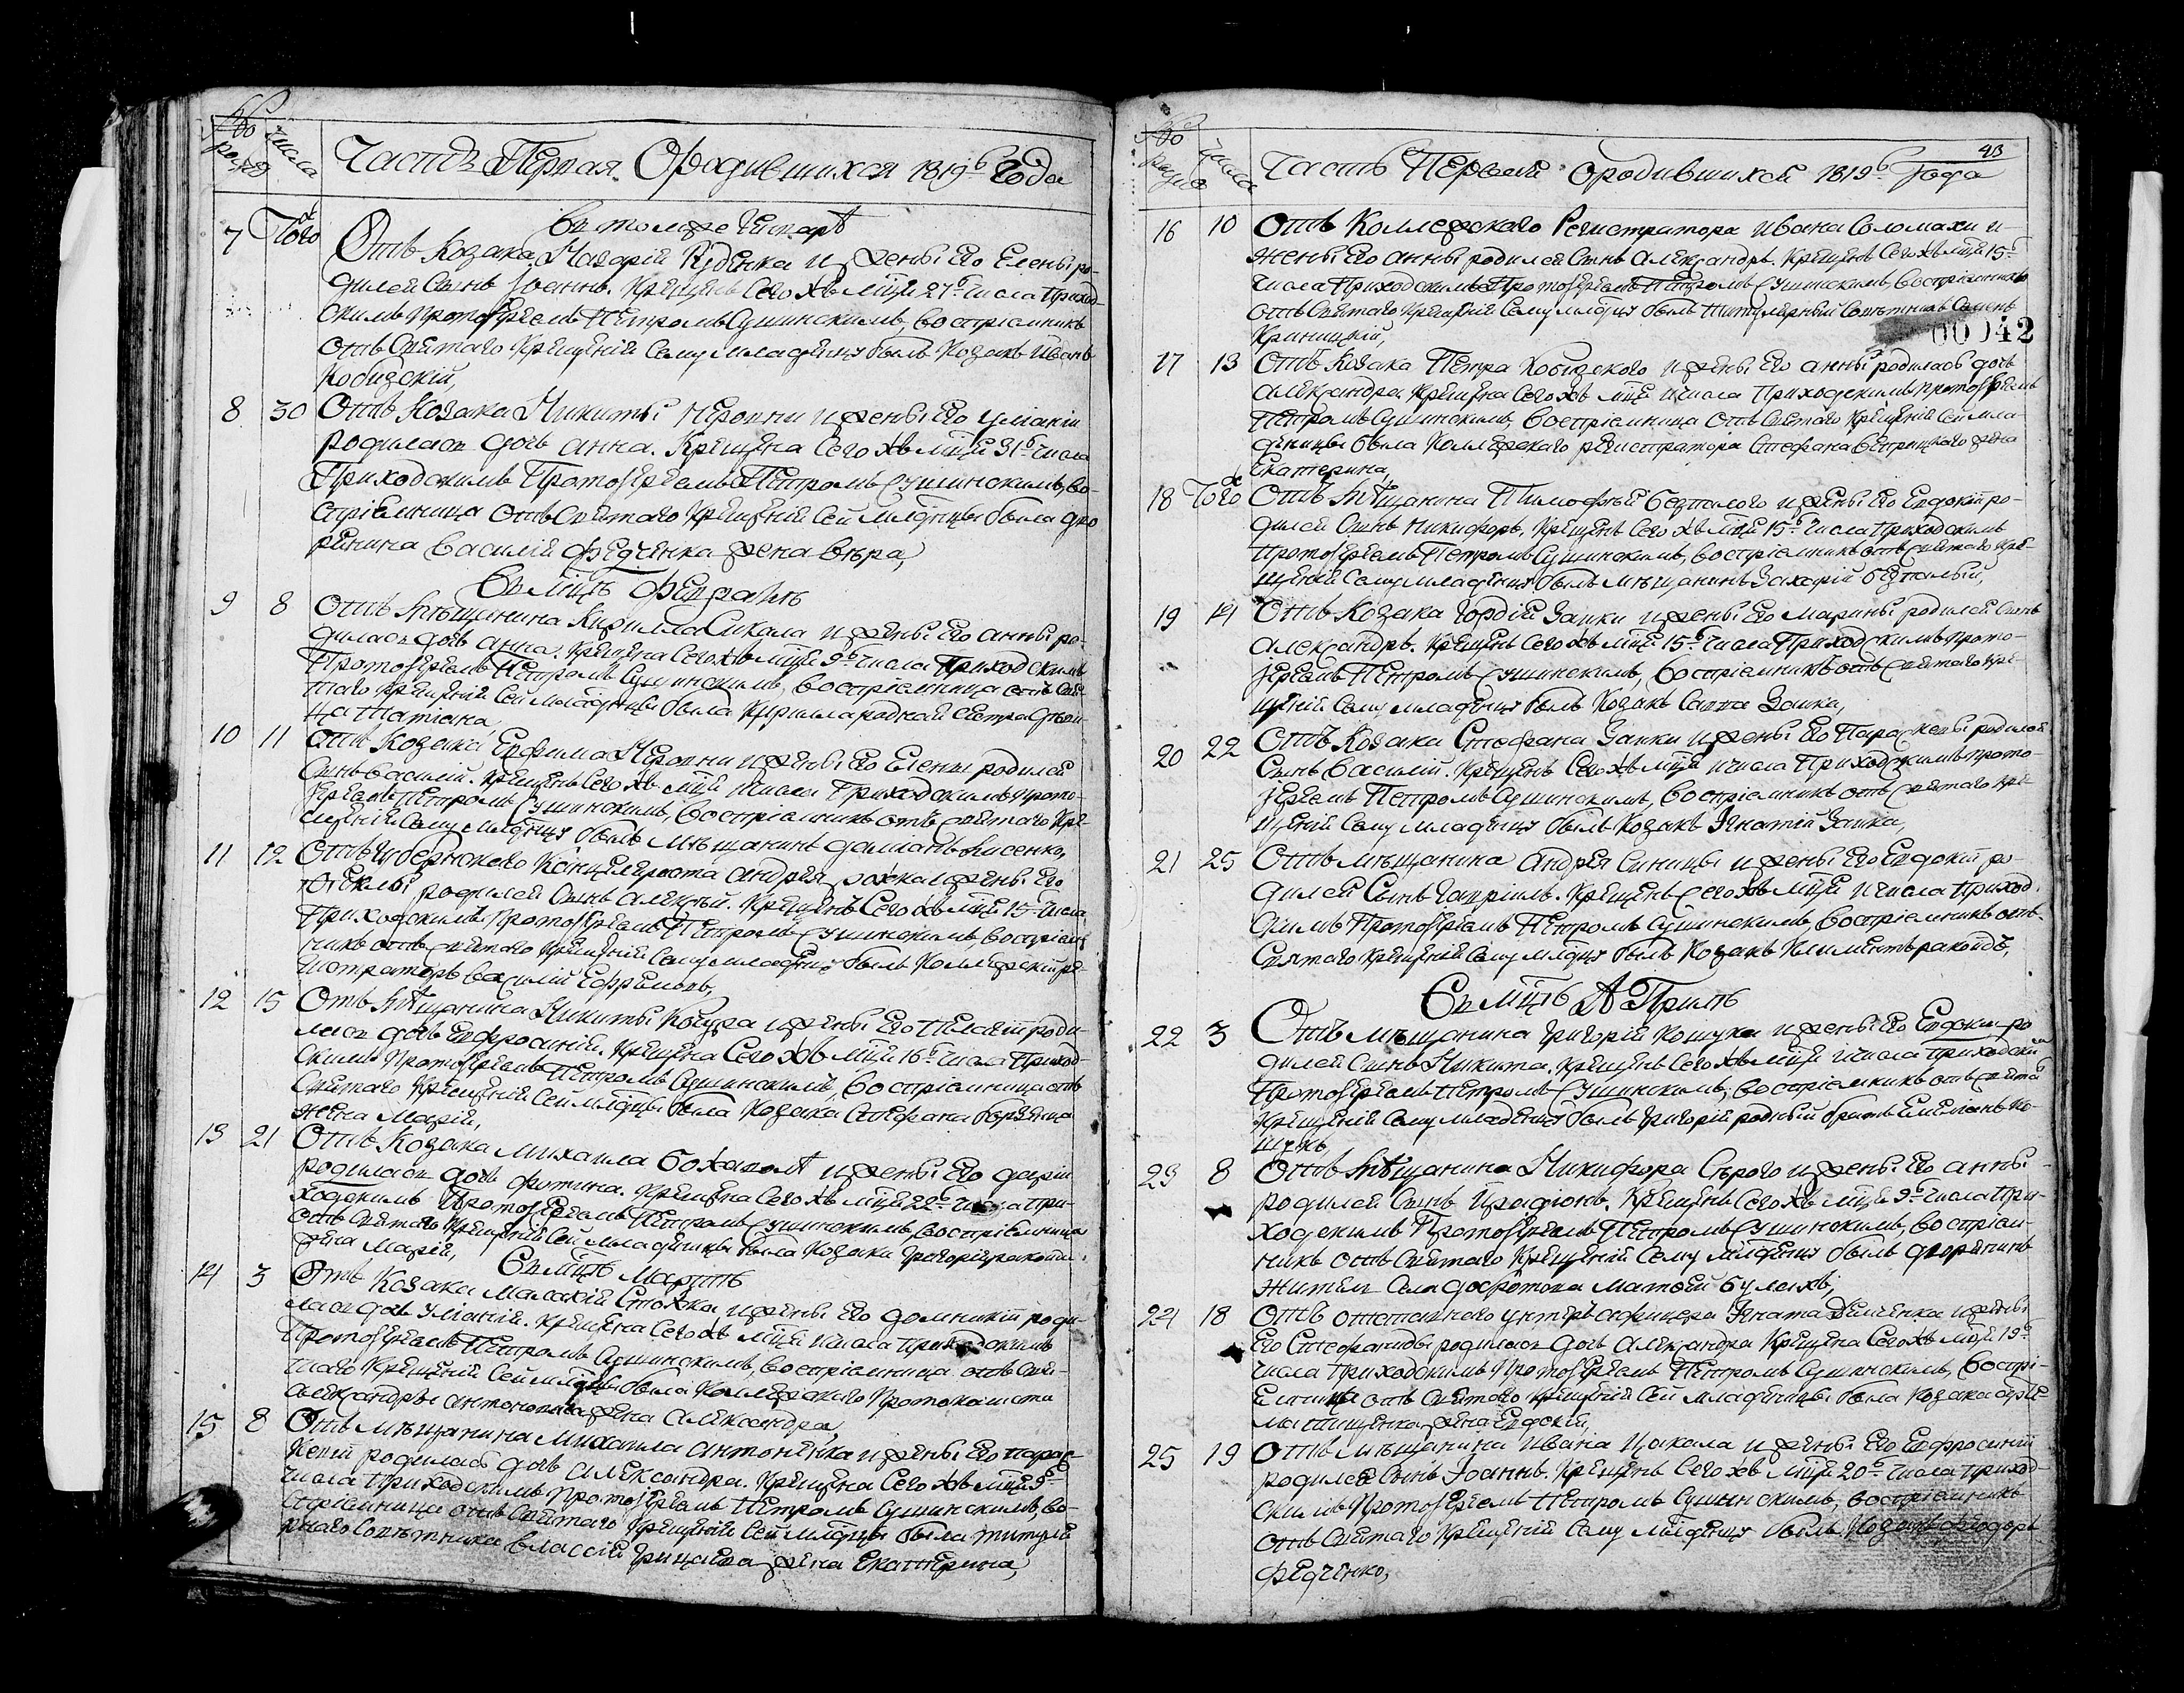 Число родж
Числа
Часть Первая. О родившихся 1819го Года
Въ томже Генварѣ
7 Тогож
Отъ Козака Назарія Руденка и жены его Елены ро-
дился сынъ Іоаннъ. Крещенъ сего хъ мця 27го числа Приход-
скимъ протоіереемъ Петромъ Сушинскимъ, воспріемникъ
отъ святаго крещенія сему младенцу былъ козакъ Иванъ
Кобизскій,
8 30 Отъ Козака Никиты Неровни и жены его Уліаніи
родилась дочь Анна. Крещена сего хъ мця 31го числа
Приходскимъ Протоіереемъ Петромъ Сушинскимъ, во-
спріемница отъ святаго крещенія сей младенцы была дво
рянина Василія Федченка жена Вѣра,
Въ мцѣ Февралѣ
9 8 Отъ мѣщанина Кирилла Сикала и жены его Анны ро-
дилась дочь Анна. Крещена сего хъ мця 9го числа Приходскимъ
Протоіереемъ Петромъ Сушинскимъ, воспріемница отъ свя-
таго крещенія сей младенцы была Кирилла родная сестра дѣви-
ца Татіана,
10 11 Отъ Козака Евфима Неровни и жены его Елены родился
сынъ Василій. Крещенъ сего хъ мця числа Приходскимъ прото-
іереемъ Петромъ Сушинскимъ, воспріемникъ отъ святаго кре-
щенія сему младенцу былъ мѣщанинъ Даміанъ Лисенко,
11 12 Отъ Губернскаго Канцеляриста Андрея жены его
Феклы родился сынъ Алексѣй. Крещенъ сего хъ мця 15го числа
Приходскимъ Протоіереемъ Петромъ Сушинскимъ, воспріем-
никъ отъ святаго крещенія сему младенцу былъ Коллежскій ре-
гистраторъ Василій Ефремовъ,
12 15 Отъ мѣщанина Никиты Коцура и жены его Пелагіи роди-
лась дочь Евфросинія. Крещена сего хъ мця 16го числа Приход-
скимъ Протоіереемъ Петромъ Сушинскимъ, воспріемница отъ
святаго крещенія сей младенцы была козака Стефана
жена Марія,
13 21 Отъ Козака Михаила и жены его Даріи
родилась дочь Фотина. Крещена сего хъ мця 22го числа При-
ходскимъ Протоіереемъ Петромъ Сушинскимъ, воспріемница
отъ святаго крещенія сей младенцы была козака Григорія
жена Марія,
Въ мцѣ Мартѣ
14 3 Отъ Козака Малахія Стожка и жены его Домникіи роди-
лась дочь Уліанія. Крещена сего хъ мця числа приходскимъ
Протоіереемъ Петромъ Сушинскимъ, воспріемница отъ свя-
таго крещенія сей младенцы была Коллежскаго Протоколиста
Александра Антоновича жена Александра,
15 8 Отъ мѣщанина Михаила Антоненка и жены его Парас-
кевіи родилась дочь Александра. Крещена сего хъ мця
числа Приходскимъ Протоіереемъ Петромъ Сушинскимъ, во-
спріемница отъ святаго крещенія сей младенцы была титуля
рнаго Совѣтника Власія жена Екатерина,
Числа
Часть Первая О родившихся 1819го Года
43
16 10 Отъ Коллежскаго Регистратора Ивана Соломахи и
жены его Анны родился сынъ Александръ. Крещенъ сего хъ мця 15го
числа Приходскимъ Протоіереемъ Петромъ Сушинскимъ, воспріемникъ
отъ святаго крещенія сему младенцу былъ титулярный Совѣтникъ Семенъ
Криницкій,
00042
17 13 Отъ Козака Петра Кобизского и жены его Анны родилась дочь
Александра. Крещена сего хъ мця числа Приходскимъ протоіереемъ
Петромъ Сушинскимъ, воспріемница отъ святаго крещенія сей мла-
денцы была Коллежскаго регистратора Стефана жена
Екатерина,
18 Тогож Отъ мѣщанина Тимофея Безпалого и жены его Евдокіи ро-
дился сынъ Никифоръ. Крещенъ сего хъ мця 15го числа Приходскимъ
Протоіереемъ Петромъ Сушинскимъ, воспріемникъ отъ святаго кре-
щенія сему младенцу былъ мѣщанинъ Захарій Безпалый,
19 14 Отъ Козака Гордія Заики и жены его Марины родился сынъ
Александръ. Крещенъ сего хъ мця 15го числа Приходскимъ прото-
іереемъ Петромъ Сушинскимъ, воспріемникъ отъ святаго кре-
щенія сему младенцу былъ козакъ Савва Заика,
20 22 Отъ Козака Стефана Заики и жены его Параскевы родился
сынъ Василій. Крещенъ сего хъ мця числа Приходскимъ прото-
іереемъ Петромъ Сушинскимъ, воспріемникъ отъ святаго кре-
щенія сему младенцу былъ козакъ Игнатій Заика,
21 25 Отъ мѣщанина Андрея Синицы и жены его Евдокіи ро-
дился сынъ Гавріилъ. Крещенъ сего хъ мця числа приход-
скимъ Протоіереемъ Петромъ Сушинскимъ, воспріемникъ отъ
святаго крещенія сему младенцу былъ козакъ Климентъ
Въ мцѣ Априлѣ
22 3 Отъ мѣщанина Григорія Кошука и жены его Евдокіи ро
дился сынъ Никита. Крещенъ сего хъ мця числа приходски
Протоіереемъ Петромъ Сушинскимъ, воспріемникъ отъ свята
крещенія сему младенцу былъ Григорія родный братъ Емеліанъ Ко-
шукъ,
23 8 Отъ мѣщанина Никифора Сѣрого и жены его Анны
родился сынъ Иродіонъ. Крещенъ сего хъ мця 9го числа При-
ходскимъ Протоіереемъ Петромъ Сушинскимъ, воспріем-
никъ отъ святаго крещенія сему младенцу былъ дворянинъ
житель села Матвей
24 18 Отъ отставнаго унтеръ афицера Игната Демченка и жены
его Стефаниды родилась дочь Александра Крещена сего хъ мця 19го
числа Приходскимъ Протоіереемъ Петромъ Сушинскимъ, воспрі-
емница отъ святаго крещенія сей младенцы была козака
жена Евдокія,
25 19 Отъ мѣщанина Ивана Цокала и жены его Евфросиніи
родился сынъ Іоаннъ. Крещенъ сего хъ мця 20го числа приход-
скимъ Протоіереемъ Петромъ Сушинскимъ, воспріемникъ
отъ святаго крещенія сему младенцу былъ козакъ Феодоръ
Федченко,